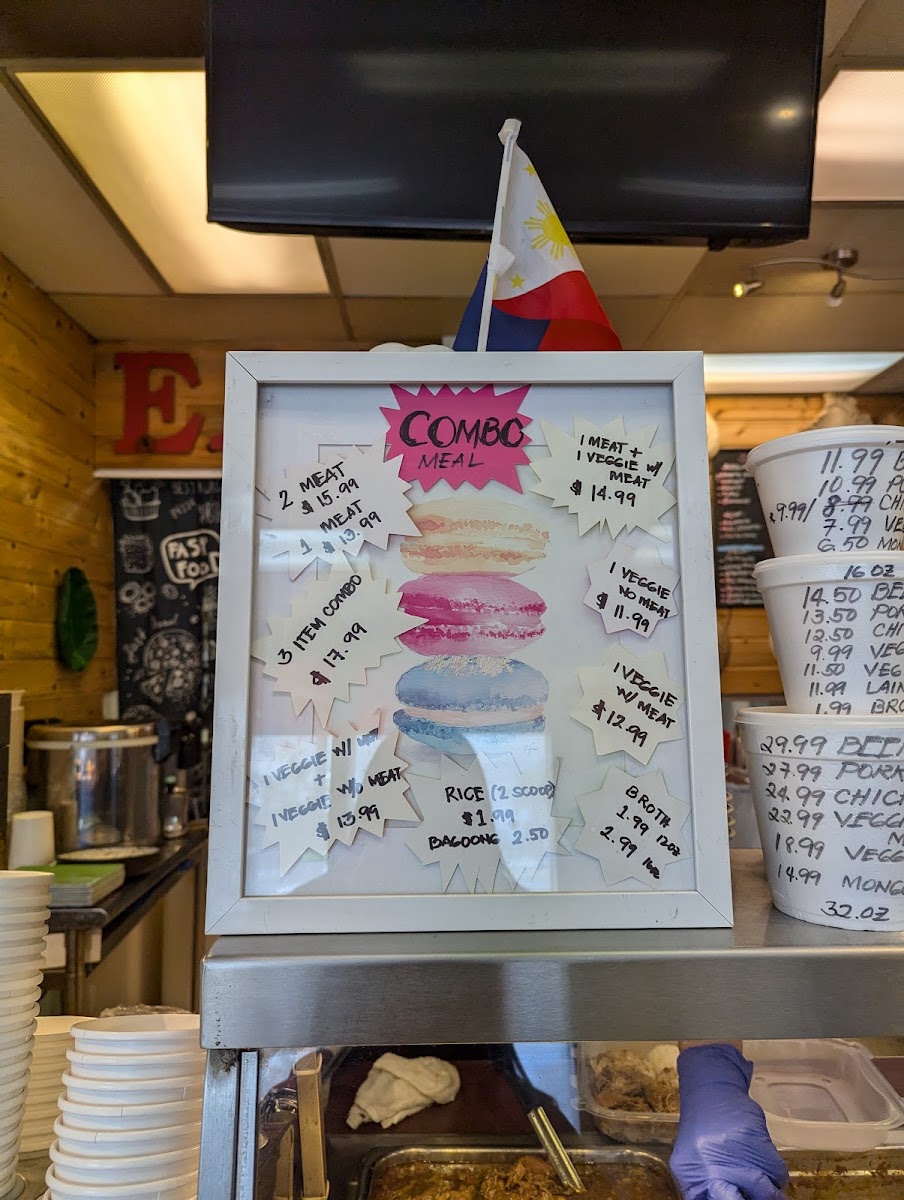 E.
FAST
FOOD
COMBO
MEAL
2 MEAT
$15.99
1 MEAT
$13.99
1 MEAT +
1 VEGGIE W/
MEAT
$14.99
3 ITEM COMBO
$17.99
1 VEGGIE
NO MEAT
$11.99
1 VEGGIE
W/ MEAT
$12.99
1 VEGGIE W/
+
1 VEGGIE W/O MEAT
$13.99
RICE (2 SCOOP)
$1.99
BAGOONG 2.50
BROTH
1.99 12oz
2.99 16oz
11.99 B
10.99 PO
9.99/ 8.99 CHI
7.99 VE
6.50 MON
16 OZ
14.50 BEE
13.50 POR
12.50 CHI
9.99 VEG
11.50 VEG
11.99 LAIN
1.99 BRO
29.99 BEEF
27.99 PORK
24.99 CHIC
22.99 VEGG
M
18.99 VEGG
14.99 MONG
32.OZ